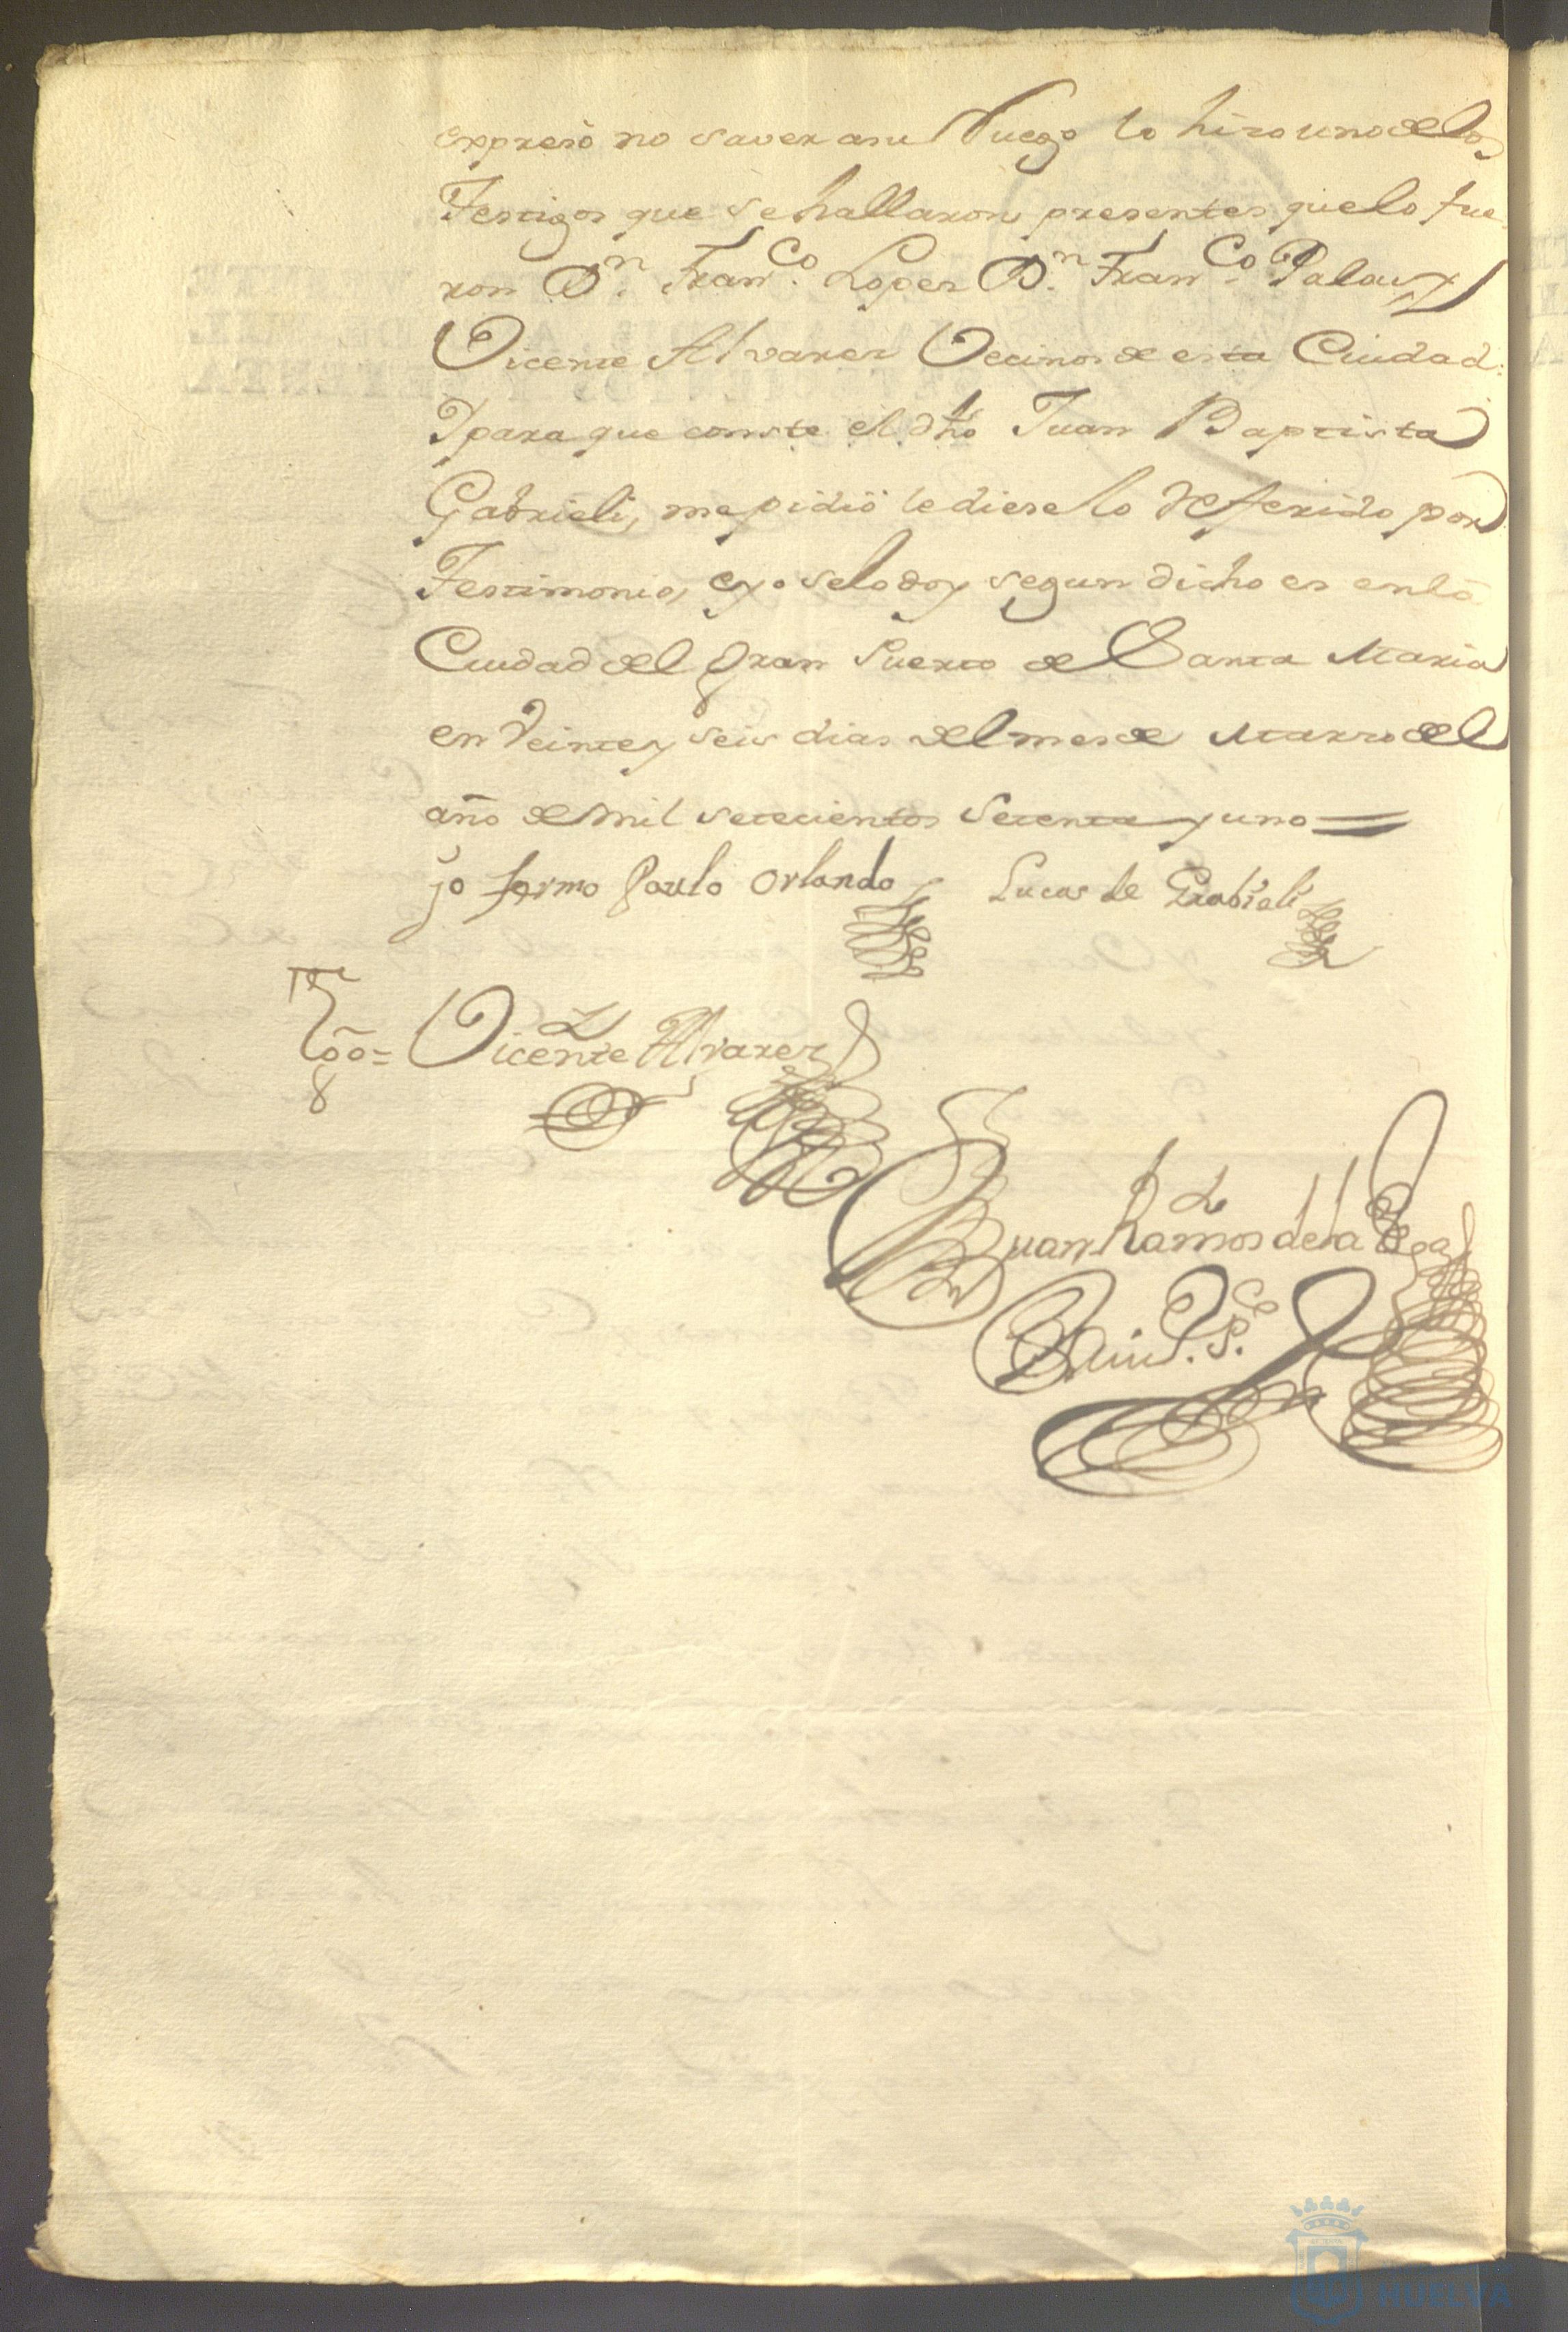 expresò no saver asu Ruego lo hizo uno delos
Testigos que se hallaron presentes quelo fue-
ron Dn. Franco. Lopez Dn. Franco. Palau y
Vicente Alvarez Vecinos de esta Ciudad:
Ypara que conste el dho Juan Baptista
Gabrieli, mepidiò le diese lo Referido por
Testimonio, eyo selo doy segun dicho es en la
Ciudad del Gran Puerto de Santa Maria
en Veinte y seis dias del mes de Marzo del
año de mil setecientos setenta y uno =
jo fermo Paulo Orlando
Lucas de Grabieli
Tgo = Vicente Alvarez
Juan Ramos de la Vega
HUELVA